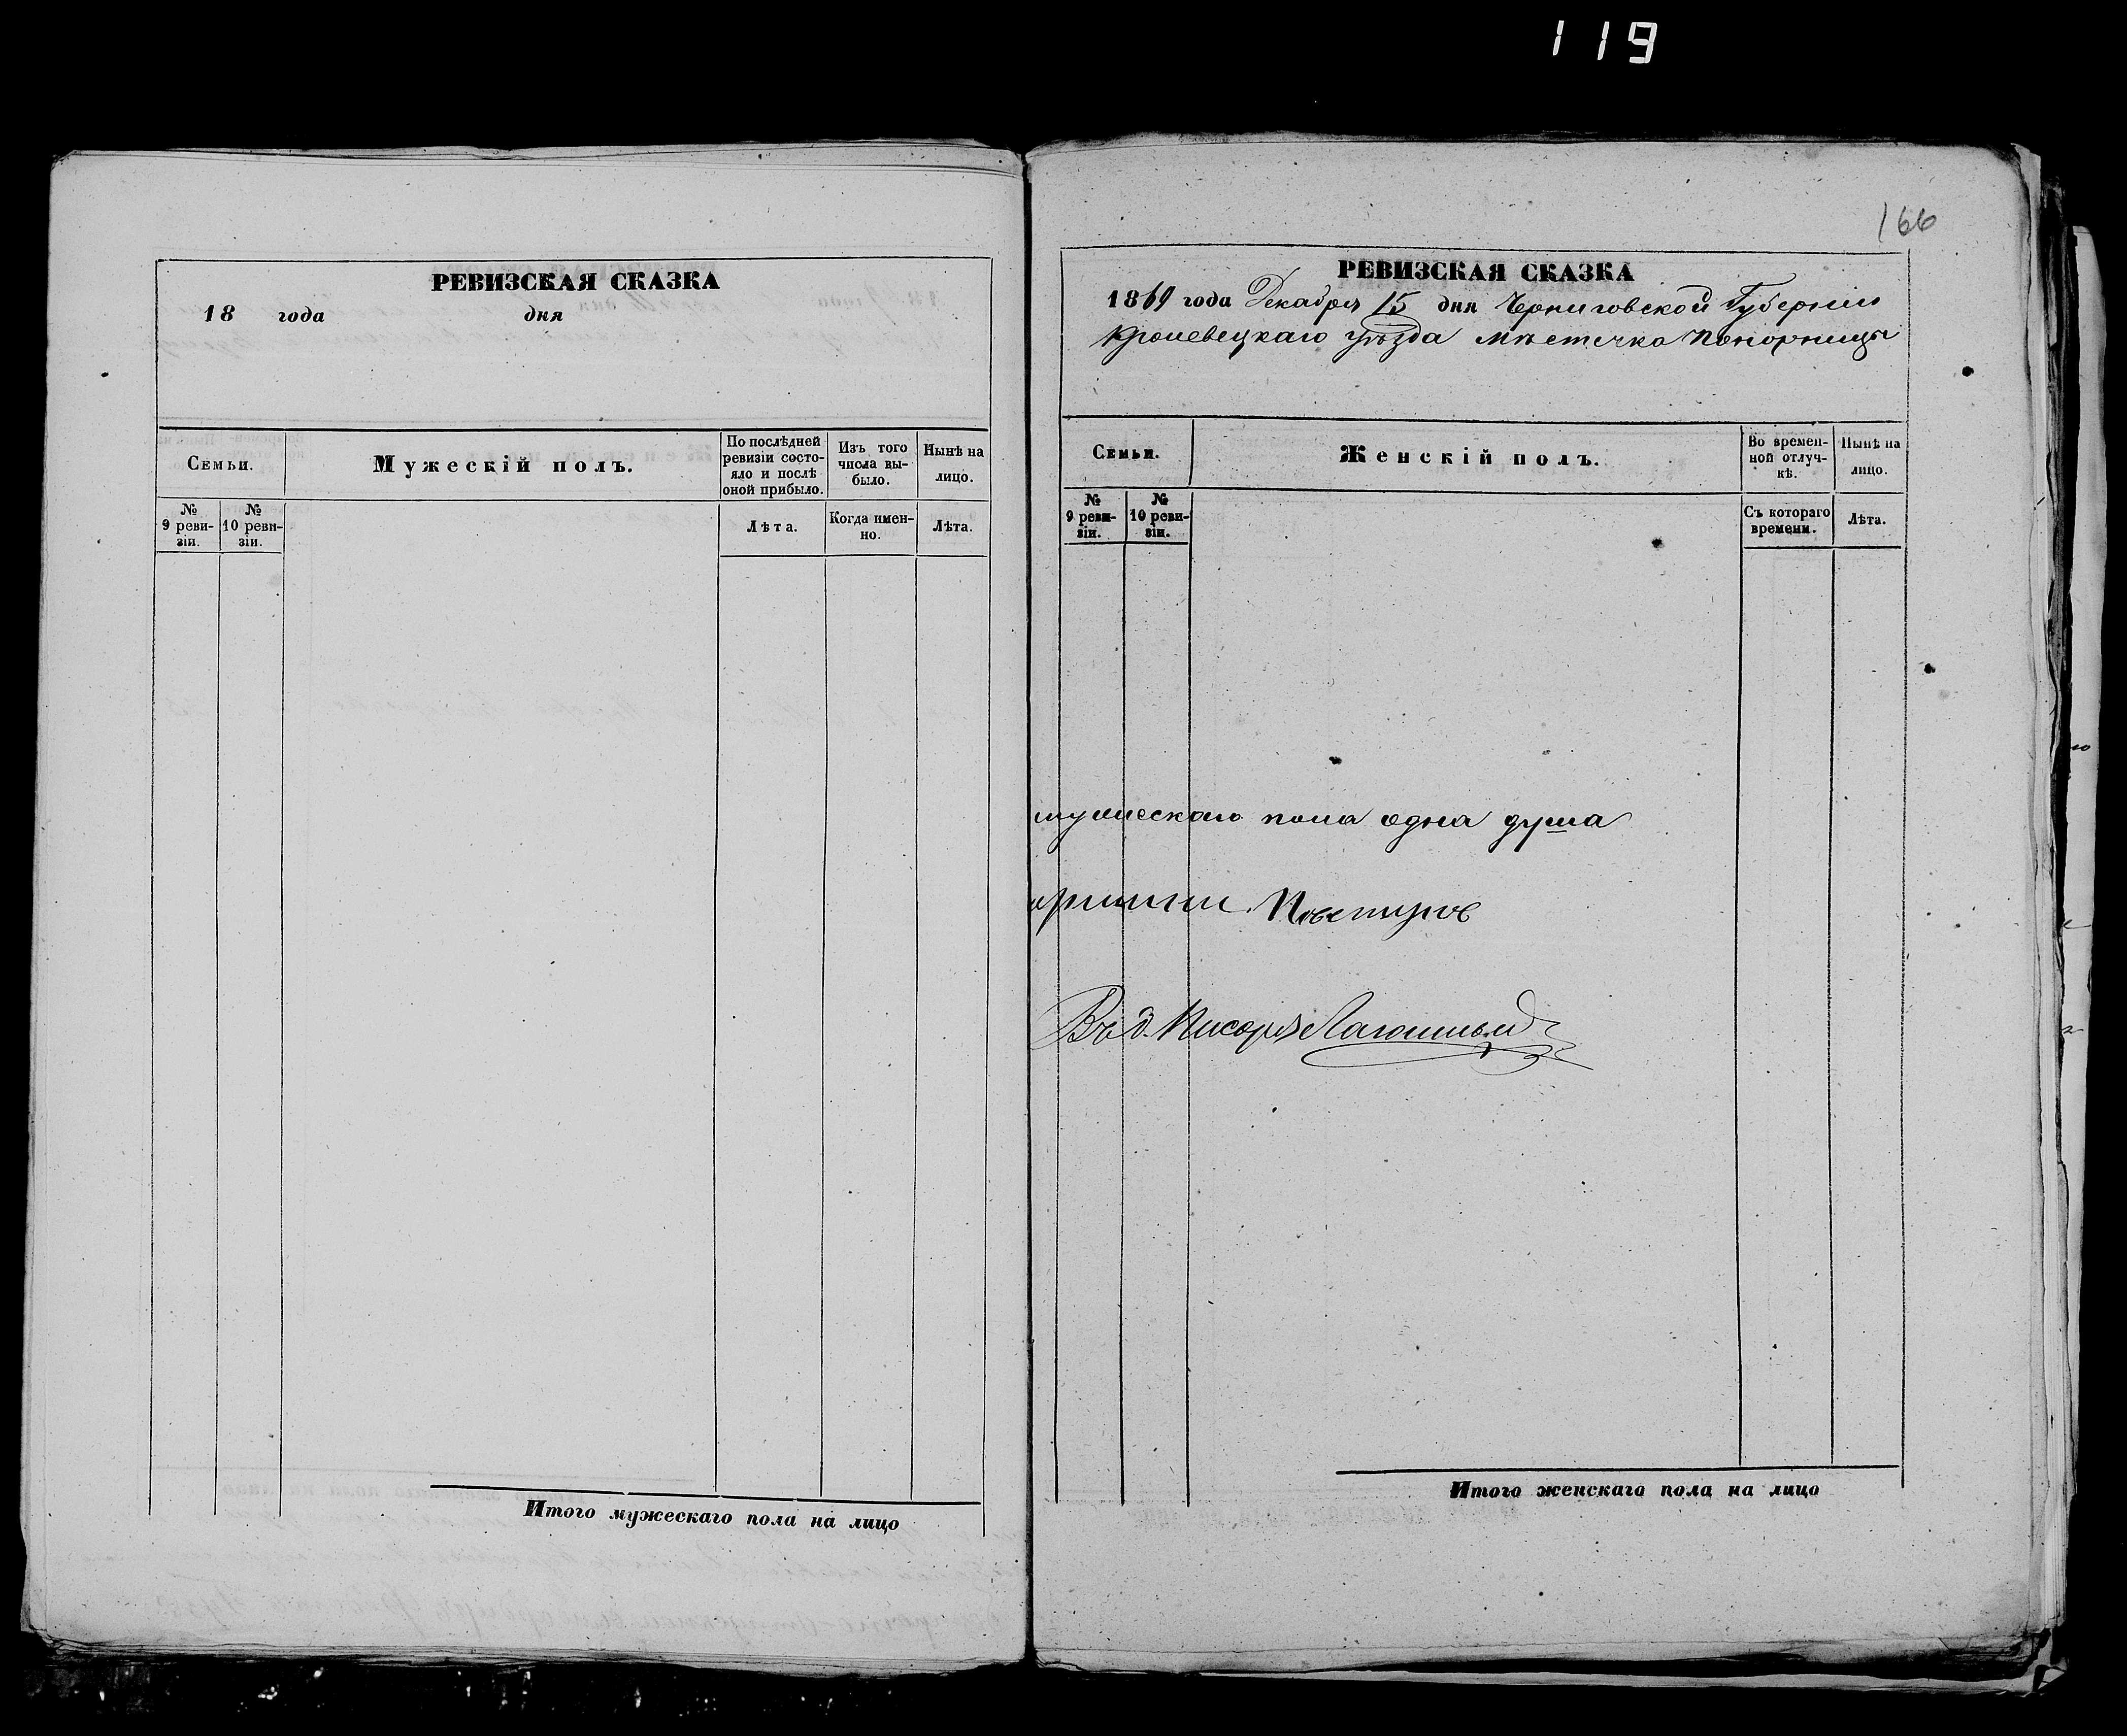 119
РЕВИЗСКАЯ СКАЗКА
18 года дня
Семьи.
Мужескій полъ.
По послѣдней ревизіи состояло и послѣ оной прибыло.
Изъ того числа выбыло.
Нынѣ на лицо.
№ 9 ревизіи.
№ 10 ревизіи.
Лѣта.
Когда именно.
Лѣта.
Итого мужескаго пола на лицо
166
РЕВИЗСКАЯ СКАЗКА
1869 года Декабря 15 дня Черниговской Губерніи
Кролевецкаго уѣзда мѣстечка Понорницы
Семьи.
Женскій полъ.
Во временной отлучкѣ.
Нынѣ на лицо.
№ 9 ревизіи.
№ 10 ревизіи.
Съ котораго времени.
Лѣта.
мужескаго пола одна душа
Въ д. Писаря
Итого женскаго пола на лицо